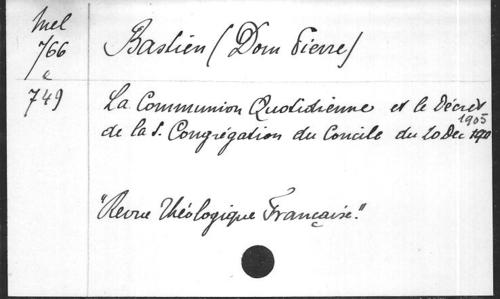 Mel
766
c
749
Bastien (Dom Pierre)
La Communion Quotidienne et le Décret
de la S. Congrégation du Concile du 20 Dec 1905
"Revue Théologique Française."